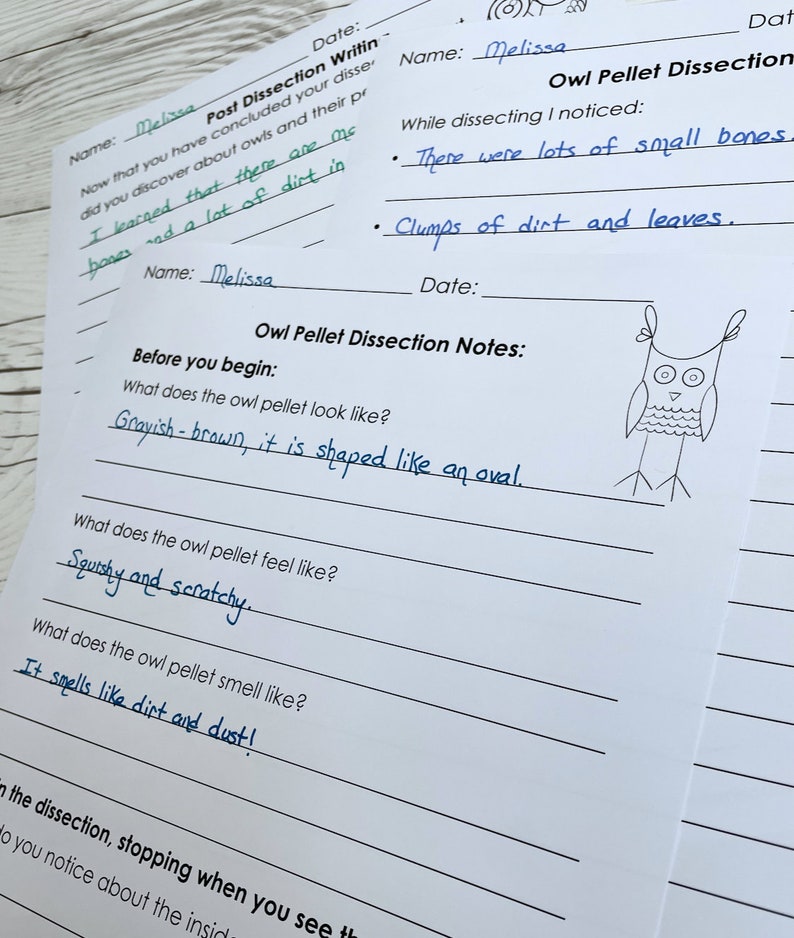 Date:
Name: Melissa
Post Dissection Writin
Now that you have concluded your disse
did you discover about owls and their pe
I learned that there are mo
bones and a lot of dirt in
Name: Melissa
Dat
Owl Pellet Dissection
While dissecting I noticed:
• There were lots of small bones.
• Clumps of dirt and leaves.
Name: Melissa Date:
Owl Pellet Dissection Notes:
Before you begin:
What does the owl pellet look like?
Grayish-brown, it is shaped like an oval.
What does the owl pellet feel like?
Squishy and scratchy.
What does the owl pellet smell like?
It smells like dirt and dust!
in the dissection, stopping when you see th
do you notice about the insid